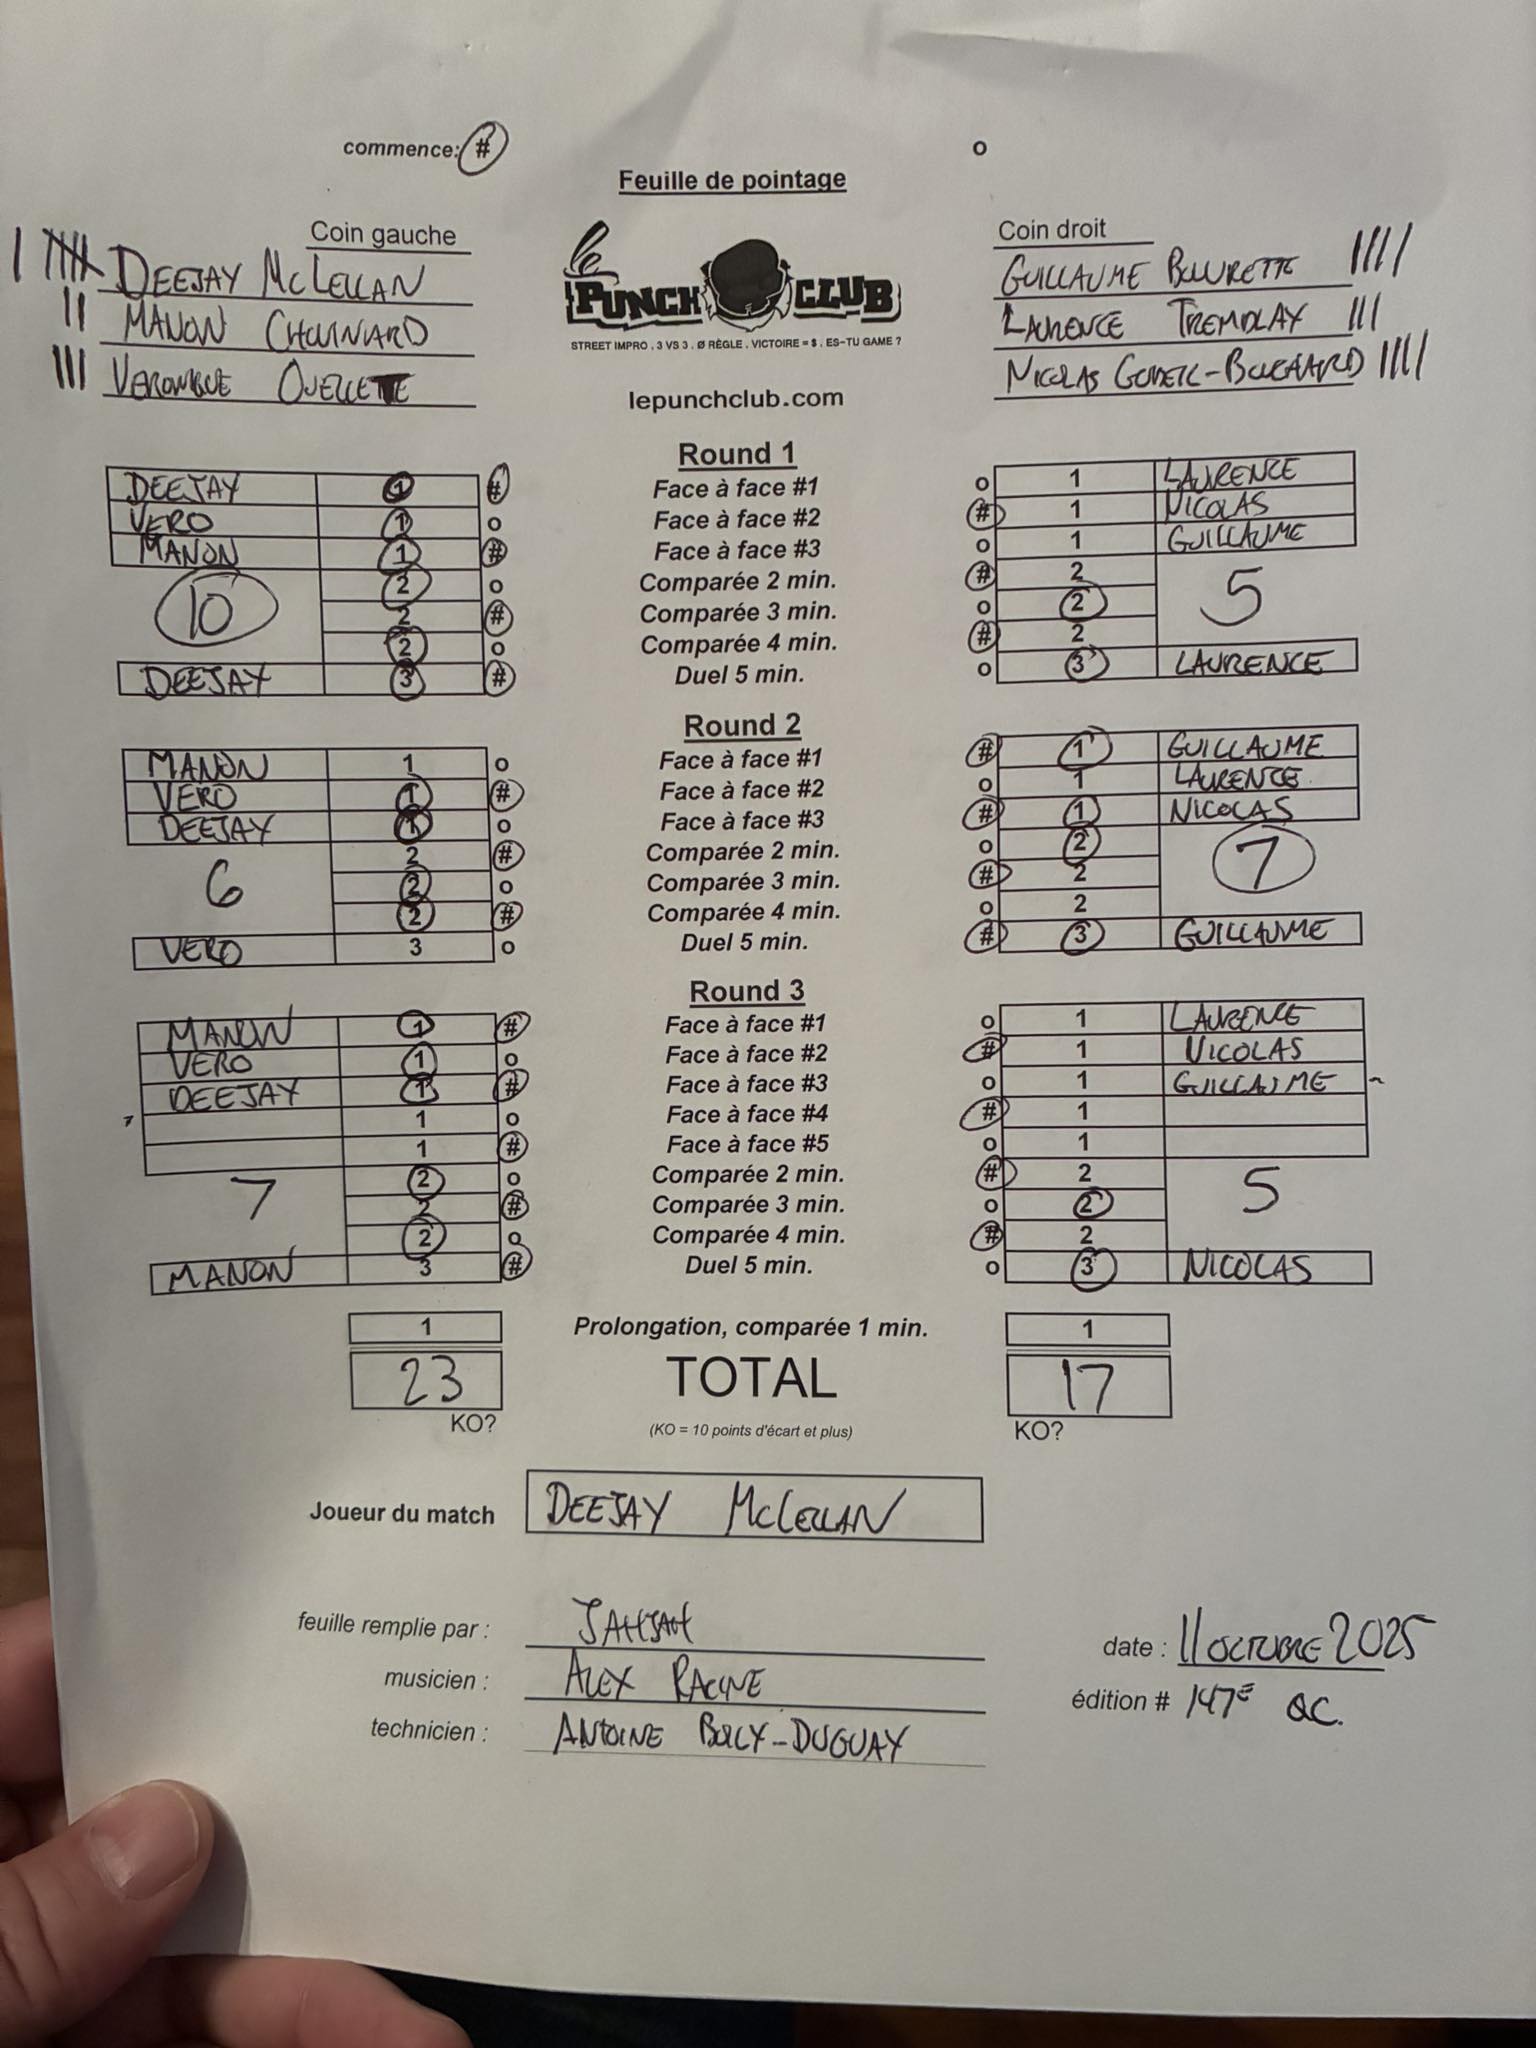 commence: # o
Feuille de pointage
Coin gauche Coin droit
DEEJAY MCLELLAN
MANON CHOUINARD
VERONIQUE OUELLETTE
PUNCH CLUB
STREET IMPRO . 3 VS 3 . Ø RÈGLE . VICTOIRE = $ . ES-TU GAME ?
lepunchclub.com
GUILLAUME
LAURENCE TREMBLAY
NICOLAS
Round 1
DEEJAY 1 # Face à face #1 o 1 LAURENCE
VERO 1 o Face à face #2 # 1 NICOLAS
MANON 1 # Face à face #3 o 1 GUILLAUME
10 2 o Comparée 2 min. # 2 5
2 # Comparée 3 min. o 2
2 o Comparée 4 min. # 2
DEEJAY 3 # Duel 5 min. o 3 LAURENCE
Round 2
MANON 1 o Face à face #1 # 1 GUILLAUME
VERO 1 # Face à face #2 o 1 LAURENCE
DEEJAY 1 o Face à face #3 # 1 NICOLAS
2 # Comparée 2 min. o 2
6 2 o Comparée 3 min. # 2 7
2 # Comparée 4 min. o 2
VERO 3 o Duel 5 min. # 3 GUILLAUME
Round 3
MANON 1 # Face à face #1 o 1 LAURENCE
VERO 1 o Face à face #2 # 1 NICOLAS
DEEJAY 1 # Face à face #3 o 1 GUILLAUME
1 o Face à face #4 # 1
1 # Face à face #5 o 1
7 2 o Comparée 2 min. # 2 5
2 # Comparée 3 min. o 2
2 o Comparée 4 min. # 2
MANON 3 # Duel 5 min. o 3 NICOLAS
1 Prolongation, comparée 1 min. 1
23 TOTAL 17
KO? (KO = 10 points d'écart et plus) KO?
Joueur du match DEEJAY MCLELLAN
feuille remplie par : JAHJAH
musicien : ALEX RACINE
technicien : ANTOINE DUGUAY
date : 11 OCTOBRE 2025
édition # 147e QC.